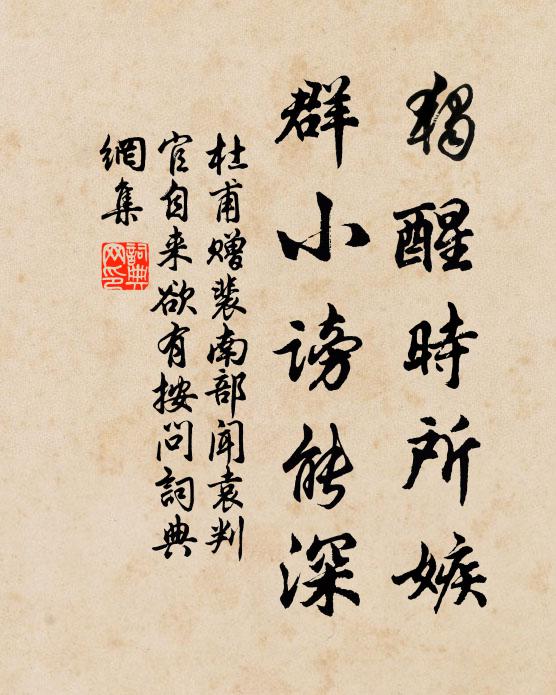 獨醒時所嫉
群小謗能深
杜甫赠裴南部聞袁判
官自来欲有按問詞典
網集
詞典
网印